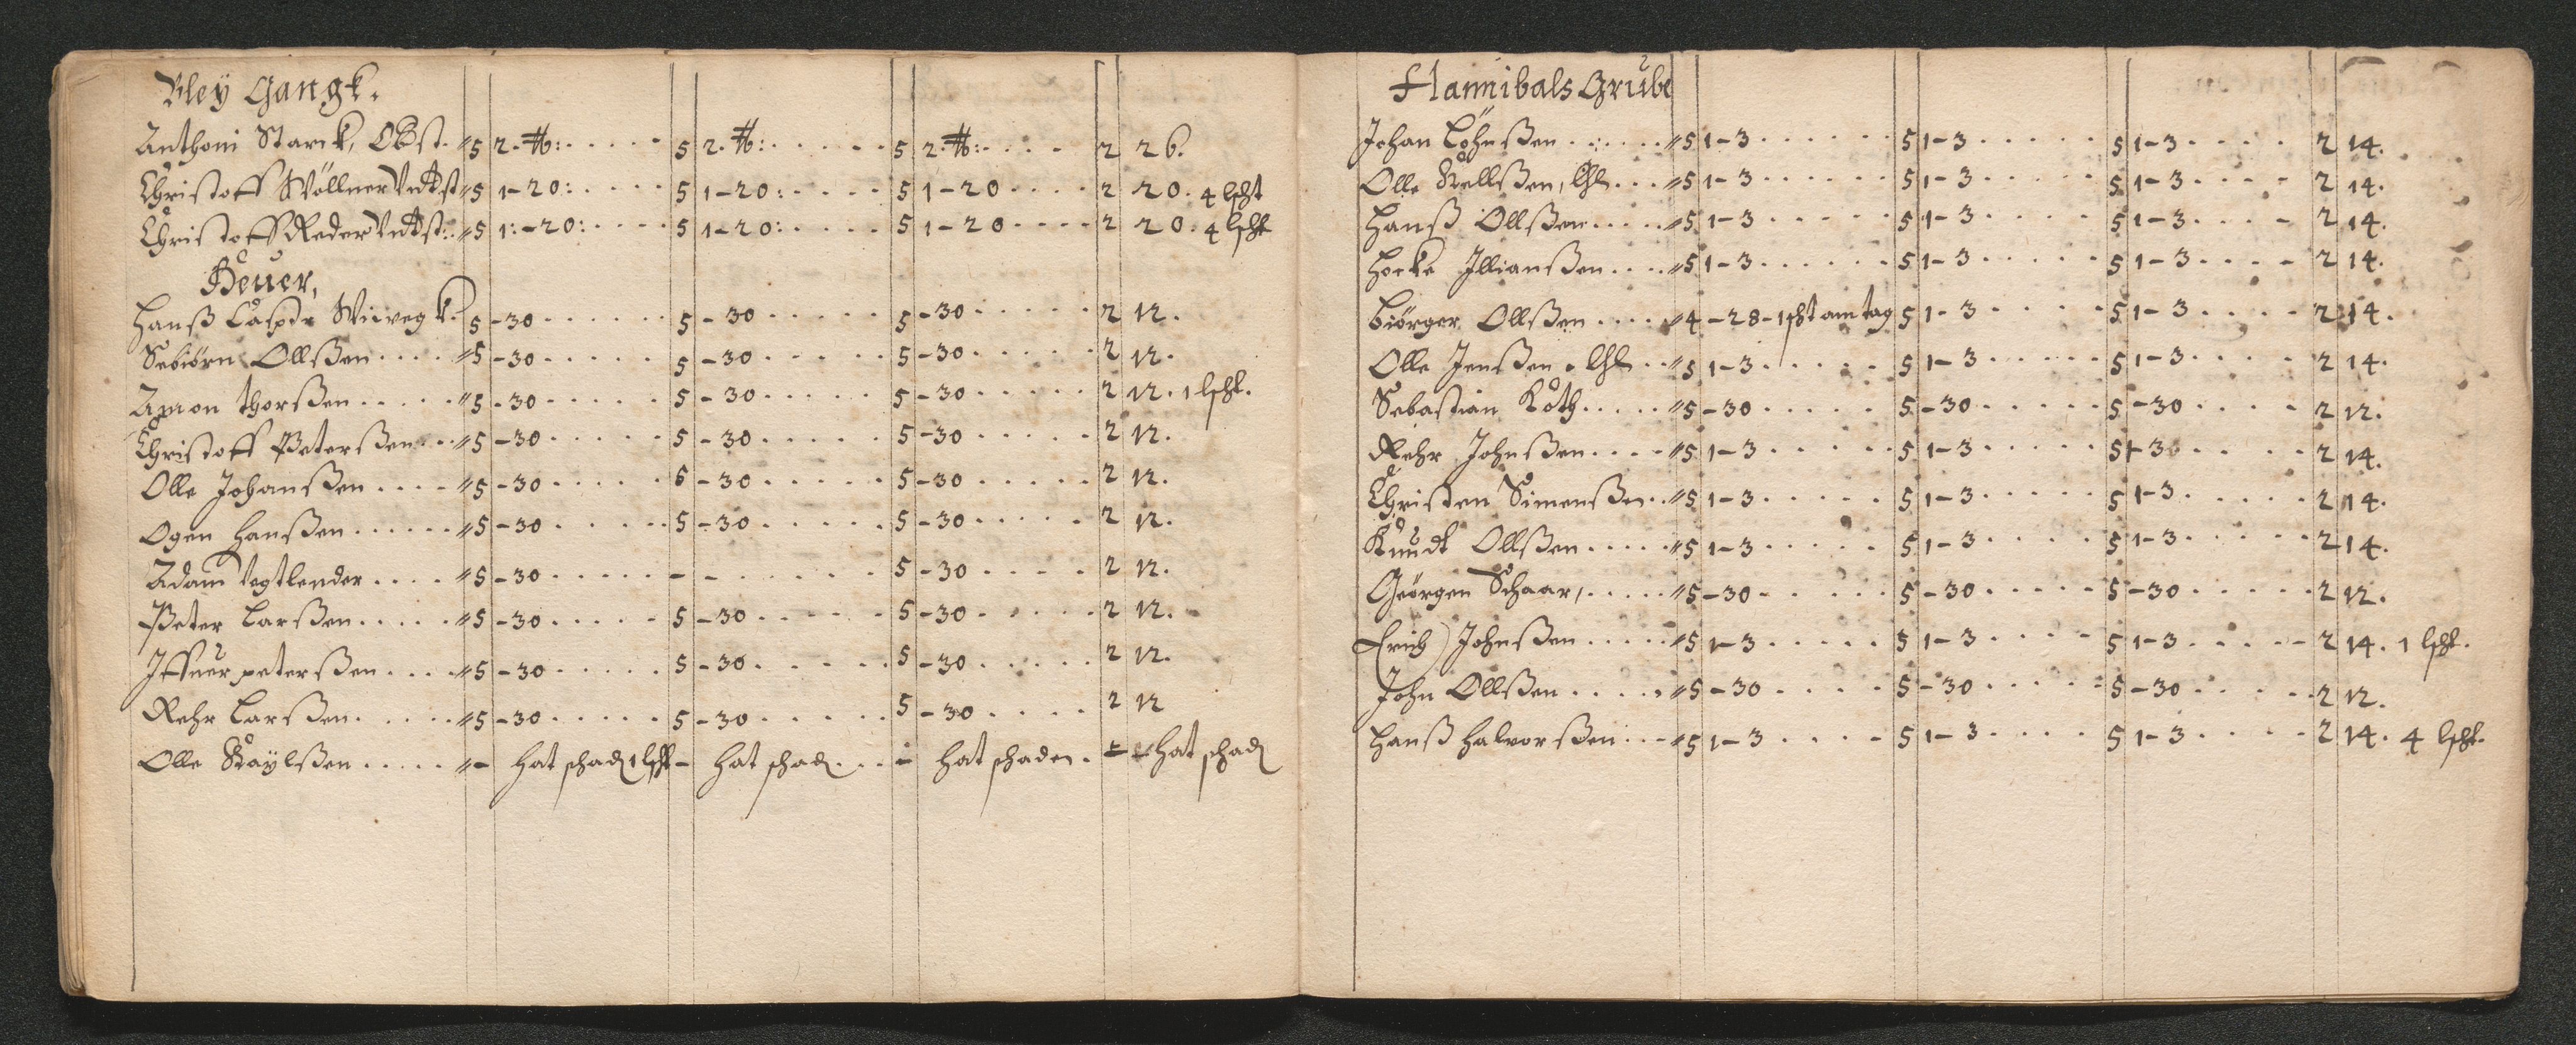 Bley Gangk.
Anthoni Starck, ObSt. 〃 5 2. ₶: . . . . . 5 2. ₶: . . . . . 5 2. ₶: . . . . 2 26.
Christoff Wöllner Vndst 〃 5 1-20: . . . . 5 1-20: . . . . 5 1-20 . . . . 2 20. 4 lscht
Christoff Reder Vndst: 〃 5 1:-20: . . . . 5 1-20: . . . . 5 1-20 . . . . 2 20. 4 lscht
Heuer,
Hanß Caspr 5 -30 . . . . . . 5 -30 . . . . . 5 -30 . . . . . 2 12.
Sebiörn Ollßen . . . . 〃 5 -30 . . . . . 5 -30 . . . . . 5 -30 . . . . . 2 12.
Amon thorßen . . . . . 〃 5 -30 . . . . . 5 -30 . . . . . 5 -30 . . . . . 2 12. 1 lscht.
Christoff Peterßen . . . 〃 5 -30 . . . . . 5 -30 . . . . . 5 -30 . . . . . 2 12.
Olle Johanßen . . . . 〃 5 -30 . . . . . 5 -30 . . . . . 5 -30 . . . . . 2 12.
Ogen Hanßen . . . . . . 〃 5 -30 . . . . . 5 -30 . . . . . 5 -30 . . . . . 2 12.
Adam Vogtlender . . . . 〃 5 -30 . . . . . - - . . . . . . 5 -30 . . . . 2 12.
Peter Larßen . . . . . 〃 5 -30 . . . . . 5 -30 . . . . . 5 -30 . . . . . 2 12.
Iffuer peterßen . . . . 〃 5 -30 . . . . . 5 -30 . . . . . 5 -30 . . . . . 2 12.
Rehr Larßen . . . . . 〃 5 -30 . . . . . 5 -30 . . . . . 5 -30 . . . . 2 12
Olle Kaylßen . . . . . 〃 - hat schad 1 lscht - hat schad . . . - hat schaden . - hat schad
Hannibals Grube
Johan Löhnßen . . . . . . 〃 5 1-3 . . . . . . 5 1-3 . . . . . 5 1-3 . . . . 2 14.
Olle Kellßen, . . . 〃 5 1-3 . . . . . . 5 1-3 . . . . . 5 1-3 . . . . 2 14.
Hanß Ollßen . . . . . 〃 5 1-3 . . . . . . 5 1-3 . . . . . 5 1-3 . . . . 2 14.
Hocke Illianßen . . . . 〃 5 1-3 . . . . . . 5 1-3 . . . . . 5 1-3 . . . . 2 14.
Biörger Ollßen . . . . 〃 4 -28- 1 scht am tag 5 1-3 . . . . . 5 1-3 . . . . 2 14.
Olle Jenßen . . . 〃 5 1-3 . . . . . 5 1-3 . . . . . 5 1-3 . . . . 2 14.
Sebastian Koth . . . . . 〃 5 -30 . . . . . 5 -30 . . . . . 5 -30 . . . . 2 12.
Rehr Johnßen . . . . 〃 5 1-3 . . . . . 5 1-3 . . . . . 5 1-3 . . . . . 2 14.
Christen Simenßen . . 〃 5 1-3 . . . . . 5 1-3 . . . . . 5 1-3 . . . . . 2 14.
Knudt Ollßen . . . . . 〃 5 1-3 . . . . . 5 1-3 . . . . 5 1-3 . . . . . 2 14.
Geörgen Schaar, . . . . . 〃 5 -30 . . . . . 5 -30 . . . . . 5 -30 . . . . . 2 12.
Erich Johnßen . . . . . 〃 5 1-3 . . . . . 5 1-3 . . . . 5 1-3 . . . . . 2 14. 1 lscht.
John Ollßen . . . . . 〃 5 -30 . . . . 5 -30 . . . . . 5 -30 . . . . . 2 12.
Hanß Halvorßen . . . 〃 5 1-3 . . . . 5 1-3 . . . . 5 1-3 . . . . 2 14. 4 lscht.